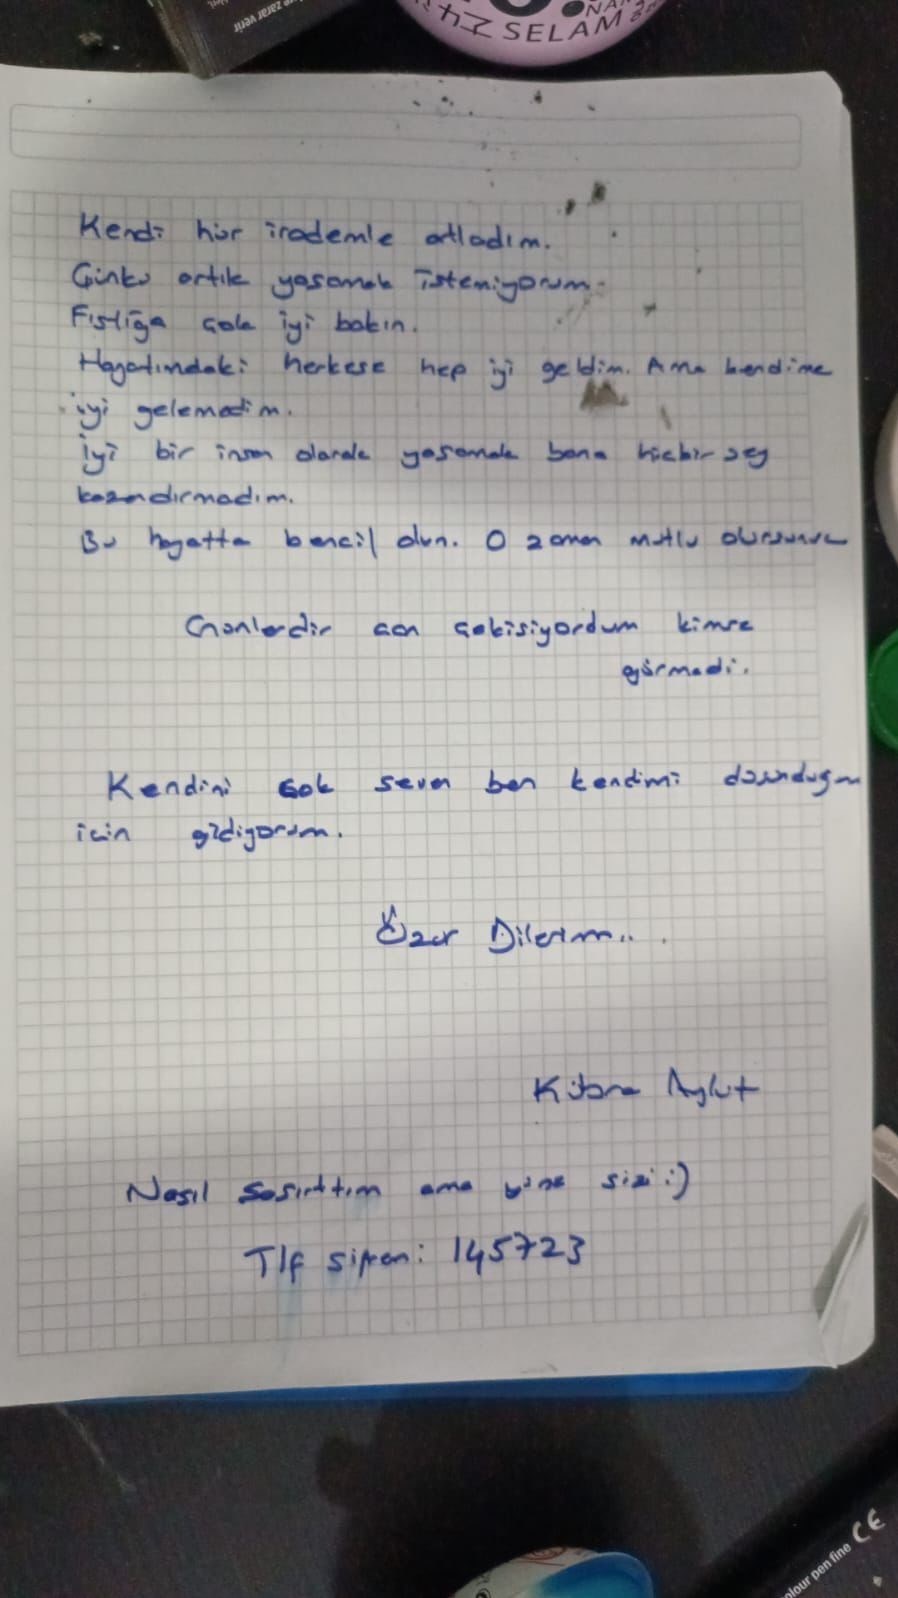 zarar verir
SELAM
Kendi hür irademle atladım.
Çünkü artık yaşamak istemiyorum.
Fıstığa çok iyi bakın.
Hayatımdaki herkese hep iyi geldim. Ama kendime
iyi gelemedim.
İyi bir insan olarak yaşamak bana hiçbir şey
kazandırmadım.
Bu hayatta bencil olun. O zaman mutlu olursunuz
acı çekişiyordum kimse
görmedi.
Kendini çok seven ben kendimi düşündüğüm
için gidiyorum.
Özür Dilerim...
Nasıl şaşırttım ama yine sizi :)
Tlf şifrem: 145723
colour pen fine CE